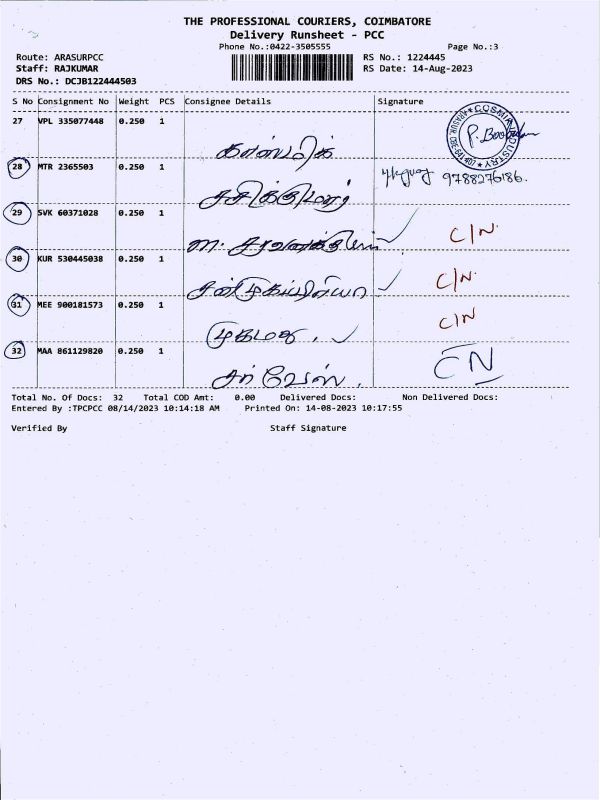 THE PROFESSIONAL COURIERS, COIMBATORE
Delivery Runsheet - PCC
Phone No.:0422-3505555 Page No.:3
Route: ARASURPCC RS No.: 1224445
Staff: RAJKUMAR RS Date: 14-Aug-2023
DRS No.: DCJB122444503
S No Consignment No Weight PCS Consignee Details Signature
27 VPL 335077448 0.250 1
28 MTR 2365503 0.250 1
9788276186.
சசிக்குமார்
29 SVK 60371028 0.250 1
C/N.
30 KUR 530445038 0.250 1
C/N.
31 MEE 900181573 0.250 1
C/N
32 MAA 861129820 0.250 1
CN
Total No. Of Docs: 32 Total COD Amt: 0.00 Delivered Docs: Non Delivered Docs:
Entered By :TPCPCC 08/14/2023 10:14:18 AM Printed On: 14-08-2023 10:17:55
Verified By Staff Signature